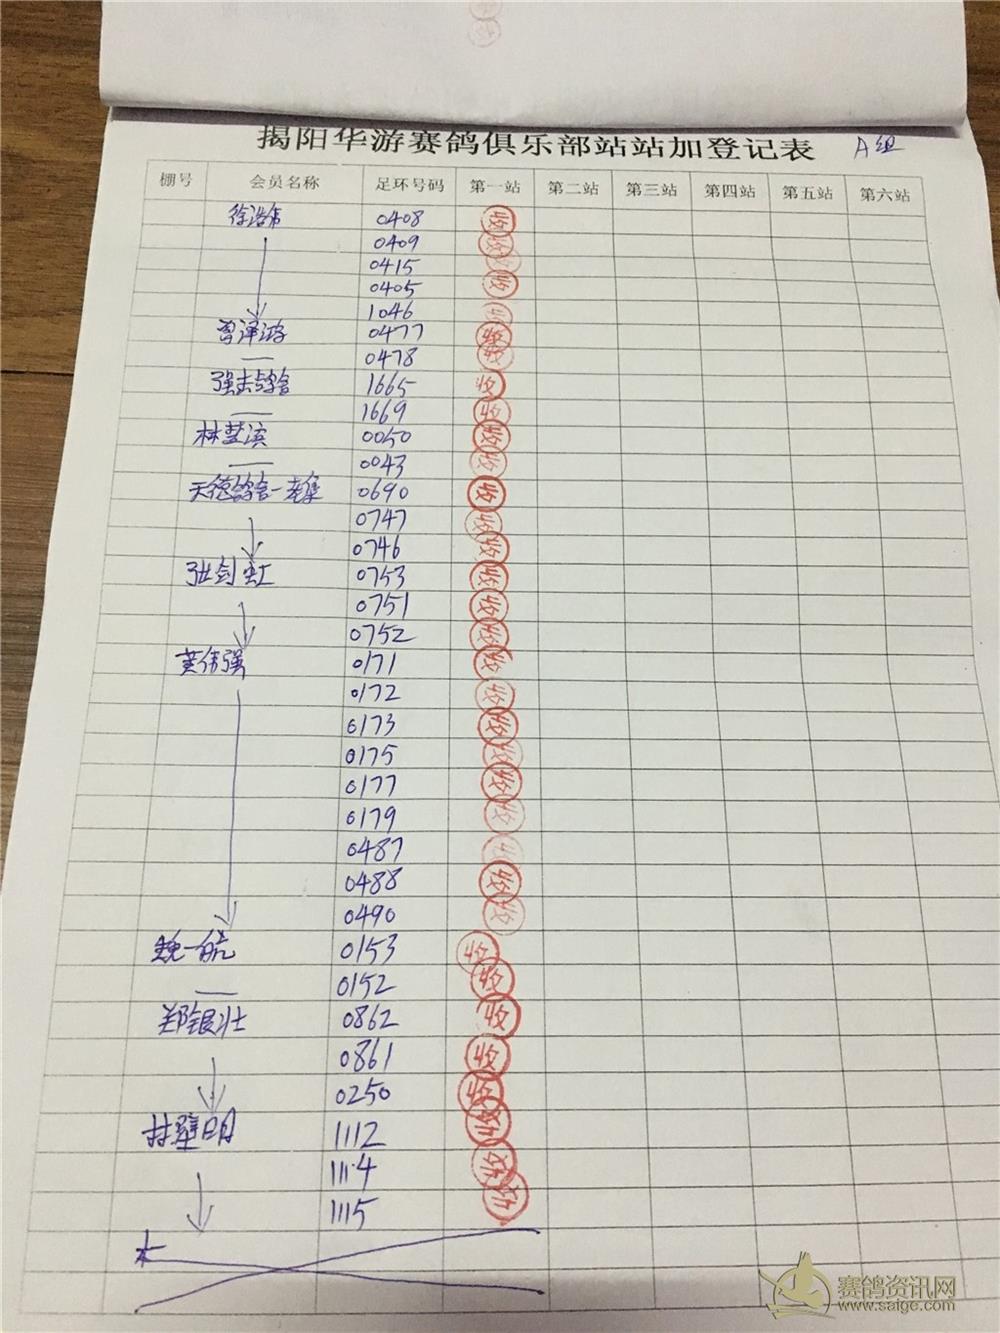 揭阳华游赛鸽俱乐部站站加登记表 A组
棚号 会员名称 足环号码 第一站 第二站 第三站 第四站 第五站 第六站
徐浩伟 0408 收
0409 收
0415
0405 收
1046 收
曾泽游 0477 收
0478 收
强击鸽舍 1665 收
1669 收
林楚滨 0050 收
0043 收
天德鸽舍一老集 0690 收
0747 收
0746 收
张剑虹 0753 收
0751 收
0752 收
黄伟强 0171 收
0172 收
0173 收
0175 收
0177 收
0179 收
0487 收
0488 收
0490 收
魏一航 0153 收
0152 收
郑银壮 0862 收
0861 收
0250 收
林壁明 1112 收
1114 收
1115 收
赛鸽资讯网
www.saige.com